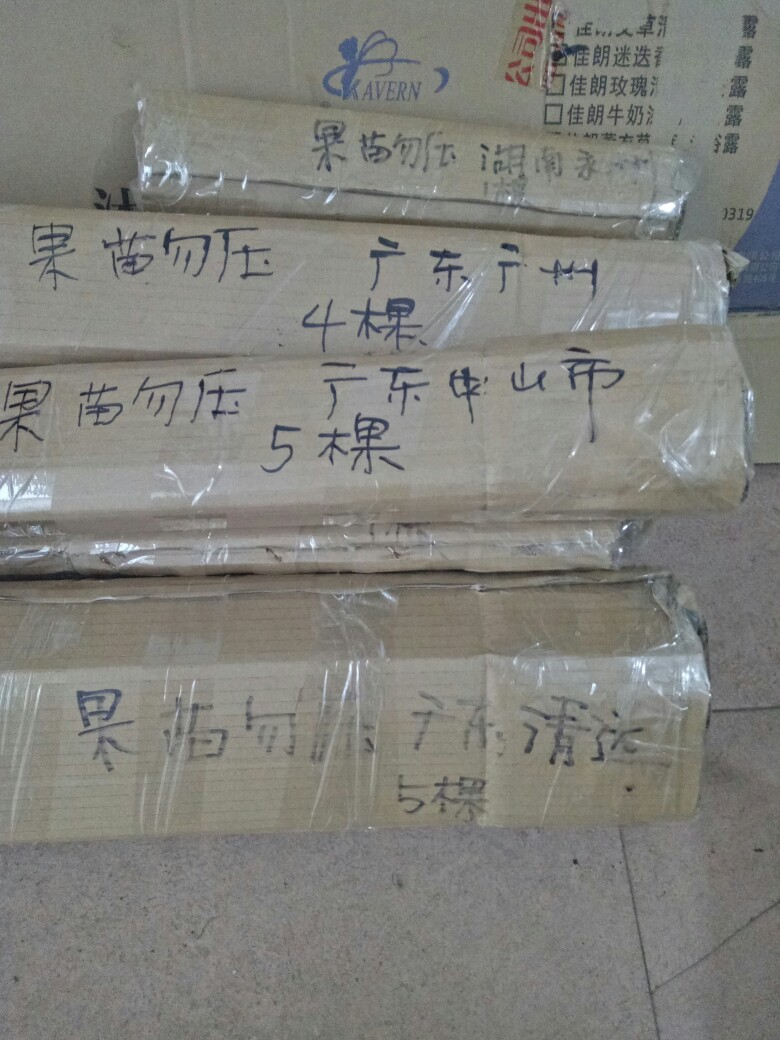 佳朗迷迭香
露
佳朗玫瑰
露
佳朗牛奶
露
KAVERN
公司
0319
果苗勿压 湖南永州
1棵
果苗勿压 广东广州
4棵
果苗勿压 广东中山市
5棵
果苗勿压 广东清远
5棵